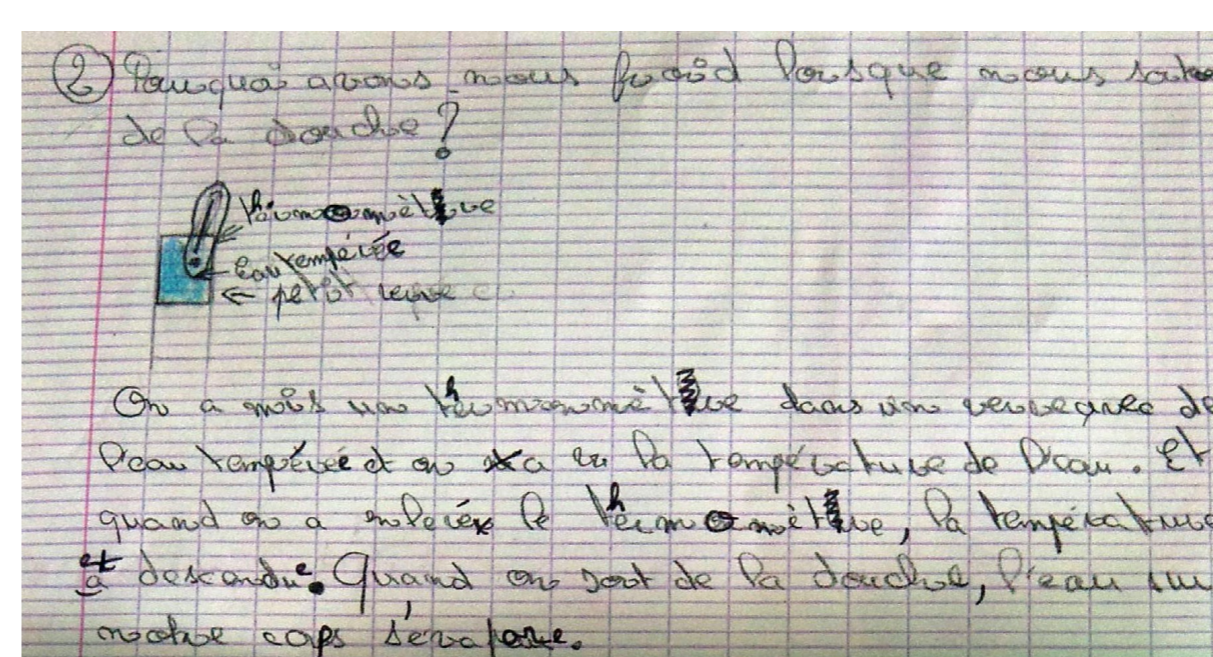 ② Pourquoi avons nous froid lorsque nous sortons
de la douche?
thermomètre
Eau tempérée
petit verre
On a mis un thermomètre dans un verre avec de
l'eau tempérée et on a vu la température de l'eau. Et
quand on a enlevé le thermomètre, la température
est descendue. Quand on sort de la douche, l'eau sur
notre corps s'évapore.